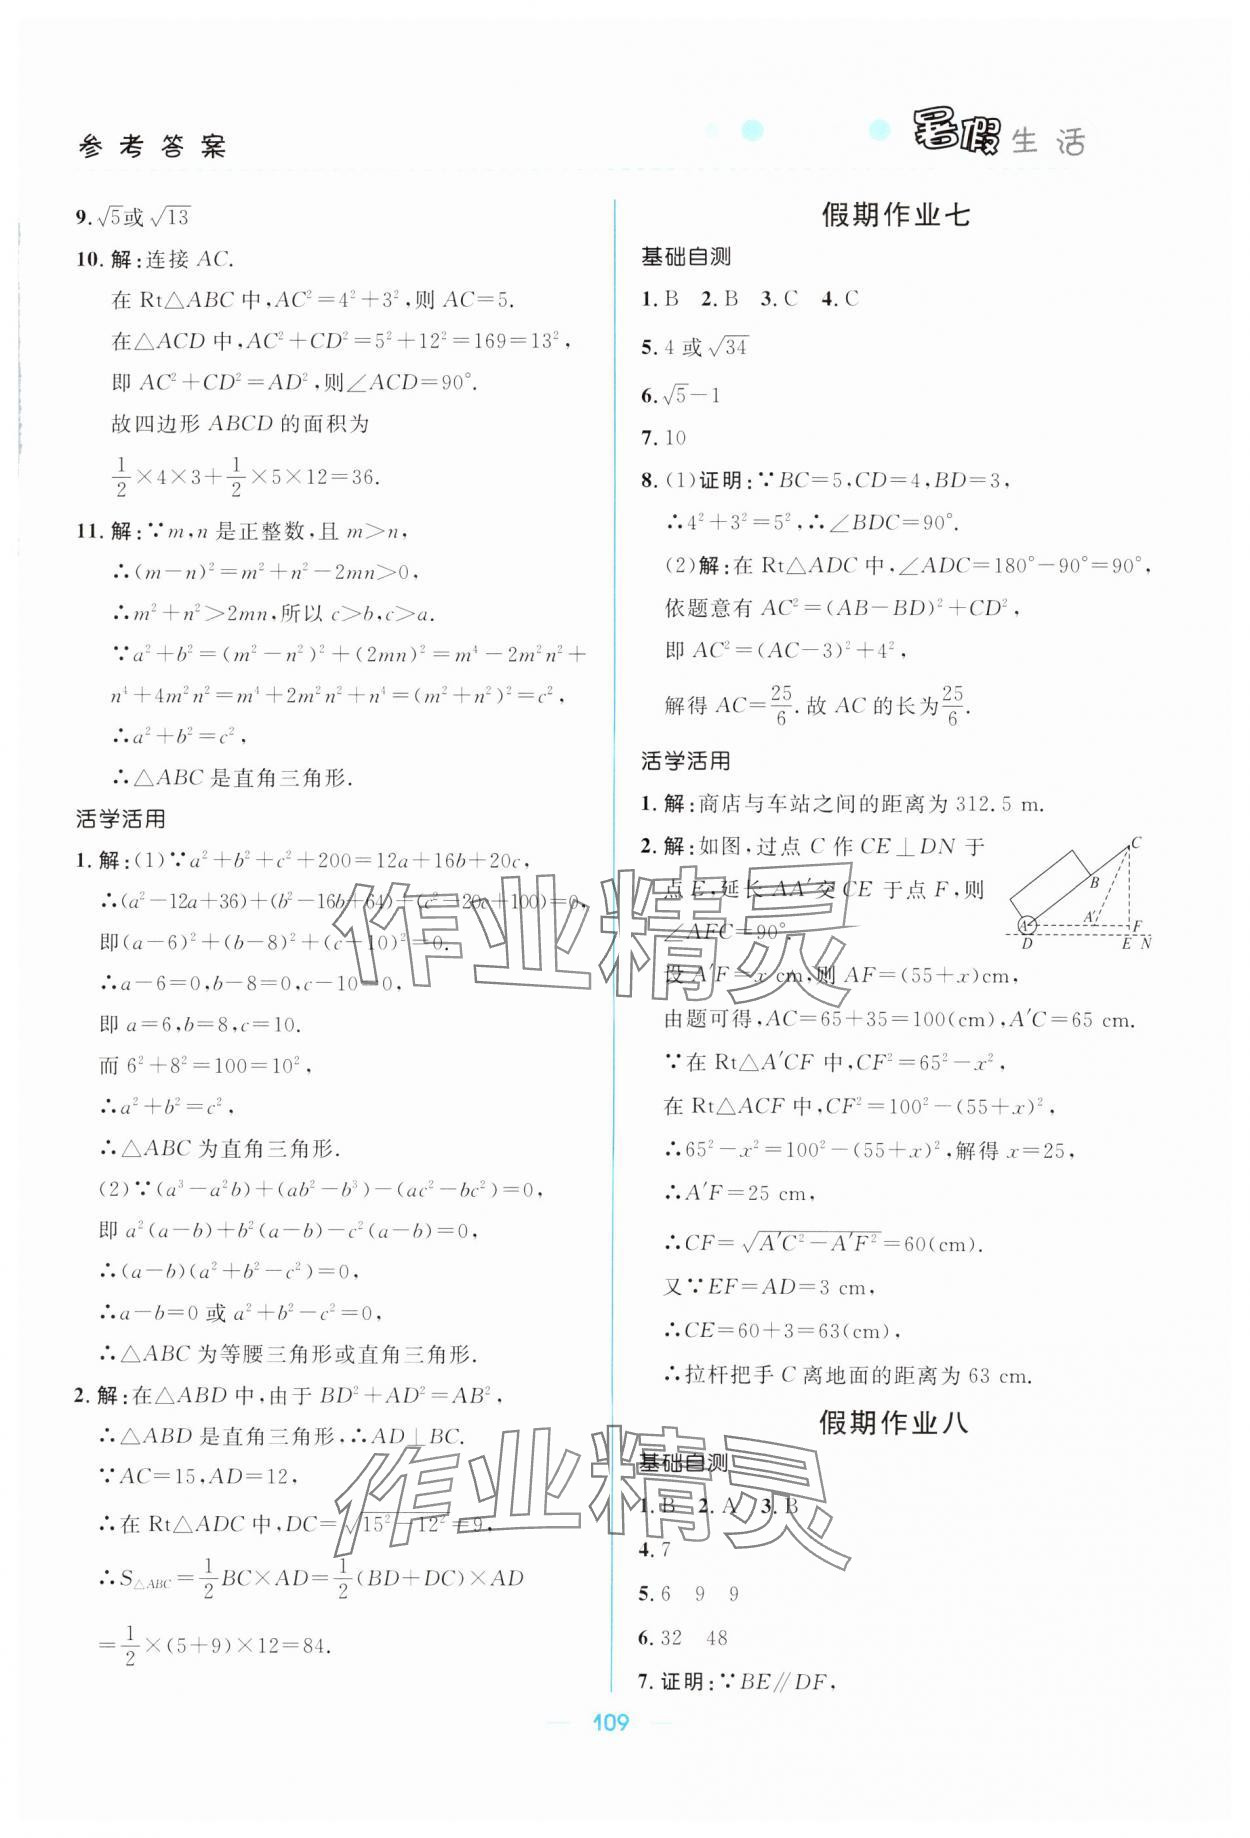 参考答案
暑假生活
9.√5或√13
10.解:连接 AC.
在 Rt△ABC 中,AC²=4²+3²,则 AC=5.
在△ACD 中,AC²+CD²=5²+12²=169=13²,
即 AC²+CD²=AD²,则∠ACD=90°.
故四边形 ABCD 的面积为
1/2×4×3+1/2×5×12=36.
11.解:∵m,n 是正整数,且 m>n,
∴(m-n)²=m²+n²-2mn>0,
∴m²+n²>2mn,所以 c>b,c>a.
∵a²+b²=(m²-n²)²+(2mn)²=m⁴-2m²n²+
n⁴+4m²n²=m⁴+2m²n²+n⁴=(m²+n²)²=c²,
∴a²+b²=c²,
∴△ABC 是直角三角形.
活学活用
1.解:(1)∵a²+b²+c²+200=12a+16b+20c,
∴(a²-12a+36)+(b²-16b+64)+(c²-20c+100)=0,
即(a-6)²+(b-8)²+(c-10)²=0.
∴a-6=0,b-8=0,c-10=0,
即 a=6,b=8,c=10.
而 6²+8²=100=10²,
∴a²+b²=c²,
∴△ABC 为直角三角形.
(2)∵(a³-a²b)+(ab²-b³)-(ac²-bc²)=0,
即 a²(a-b)+b²(a-b)-c²(a-b)=0,
∴(a-b)(a²+b²-c²)=0,
∴a-b=0 或 a²+b²-c²=0,
∴△ABC 为等腰三角形或直角三角形.
2.解:在△ABD 中,由于 BD²+AD²=AB²,
∴△ABD 是直角三角形,∴AD⊥BC.
∵AC=15,AD=12,
∴在 Rt△ADC 中,DC=√(15²-12²)=9,
∴S△ABC=1/2BC×AD=1/2(BD+DC)×AD
=1/2×(5+9)×12=84.
假期作业七
基础自测
1.B 2.B 3.C 4.C
5.4 或√34
6.√5-1
7.10
8.(1)证明:∵BC=5,CD=4,BD=3,
∴4²+3²=5²,∴∠BDC=90°.
(2)解:在 Rt△ADC 中,∠ADC=180°-90°=90°,
依题意有 AC²=(AB-BD)²+CD²,
即 AC²=(AC-3)²+4²,
解得 AC=25/6.故 AC 的长为25/6.
活学活用
1.解:商店与车站之间的距离为 312.5 m.
2.解:如图,过点 C 作 CE⊥DN 于
点 E,延长 AA′交 CE 于点 F,则
∠AFC=90°.
C
B
A
A′
F
D
E
N
设 A′F=x cm,则 AF=(55+x)cm,
由题可得,AC=65+35=100(cm),A′C=65 cm.
∵在 Rt△A′CF 中,CF²=65²-x²,
在 Rt△ACF 中,CF²=100²-(55+x)²,
∴65²-x²=100²-(55+x)²,解得 x=25,
∴A′F=25 cm,
∴CF=√(A′C²-A′F²)=60(cm).
又∵EF=AD=3 cm,
∴CE=60+3=63(cm),
∴拉杆把手 C 离地面的距离为 63 cm.
假期作业八
基础自测
1.B 2.A 3.B
4.7
5.6 9 9
6.32 48
7.证明:∵BE∥DF,
109
作业精灵
作业精灵